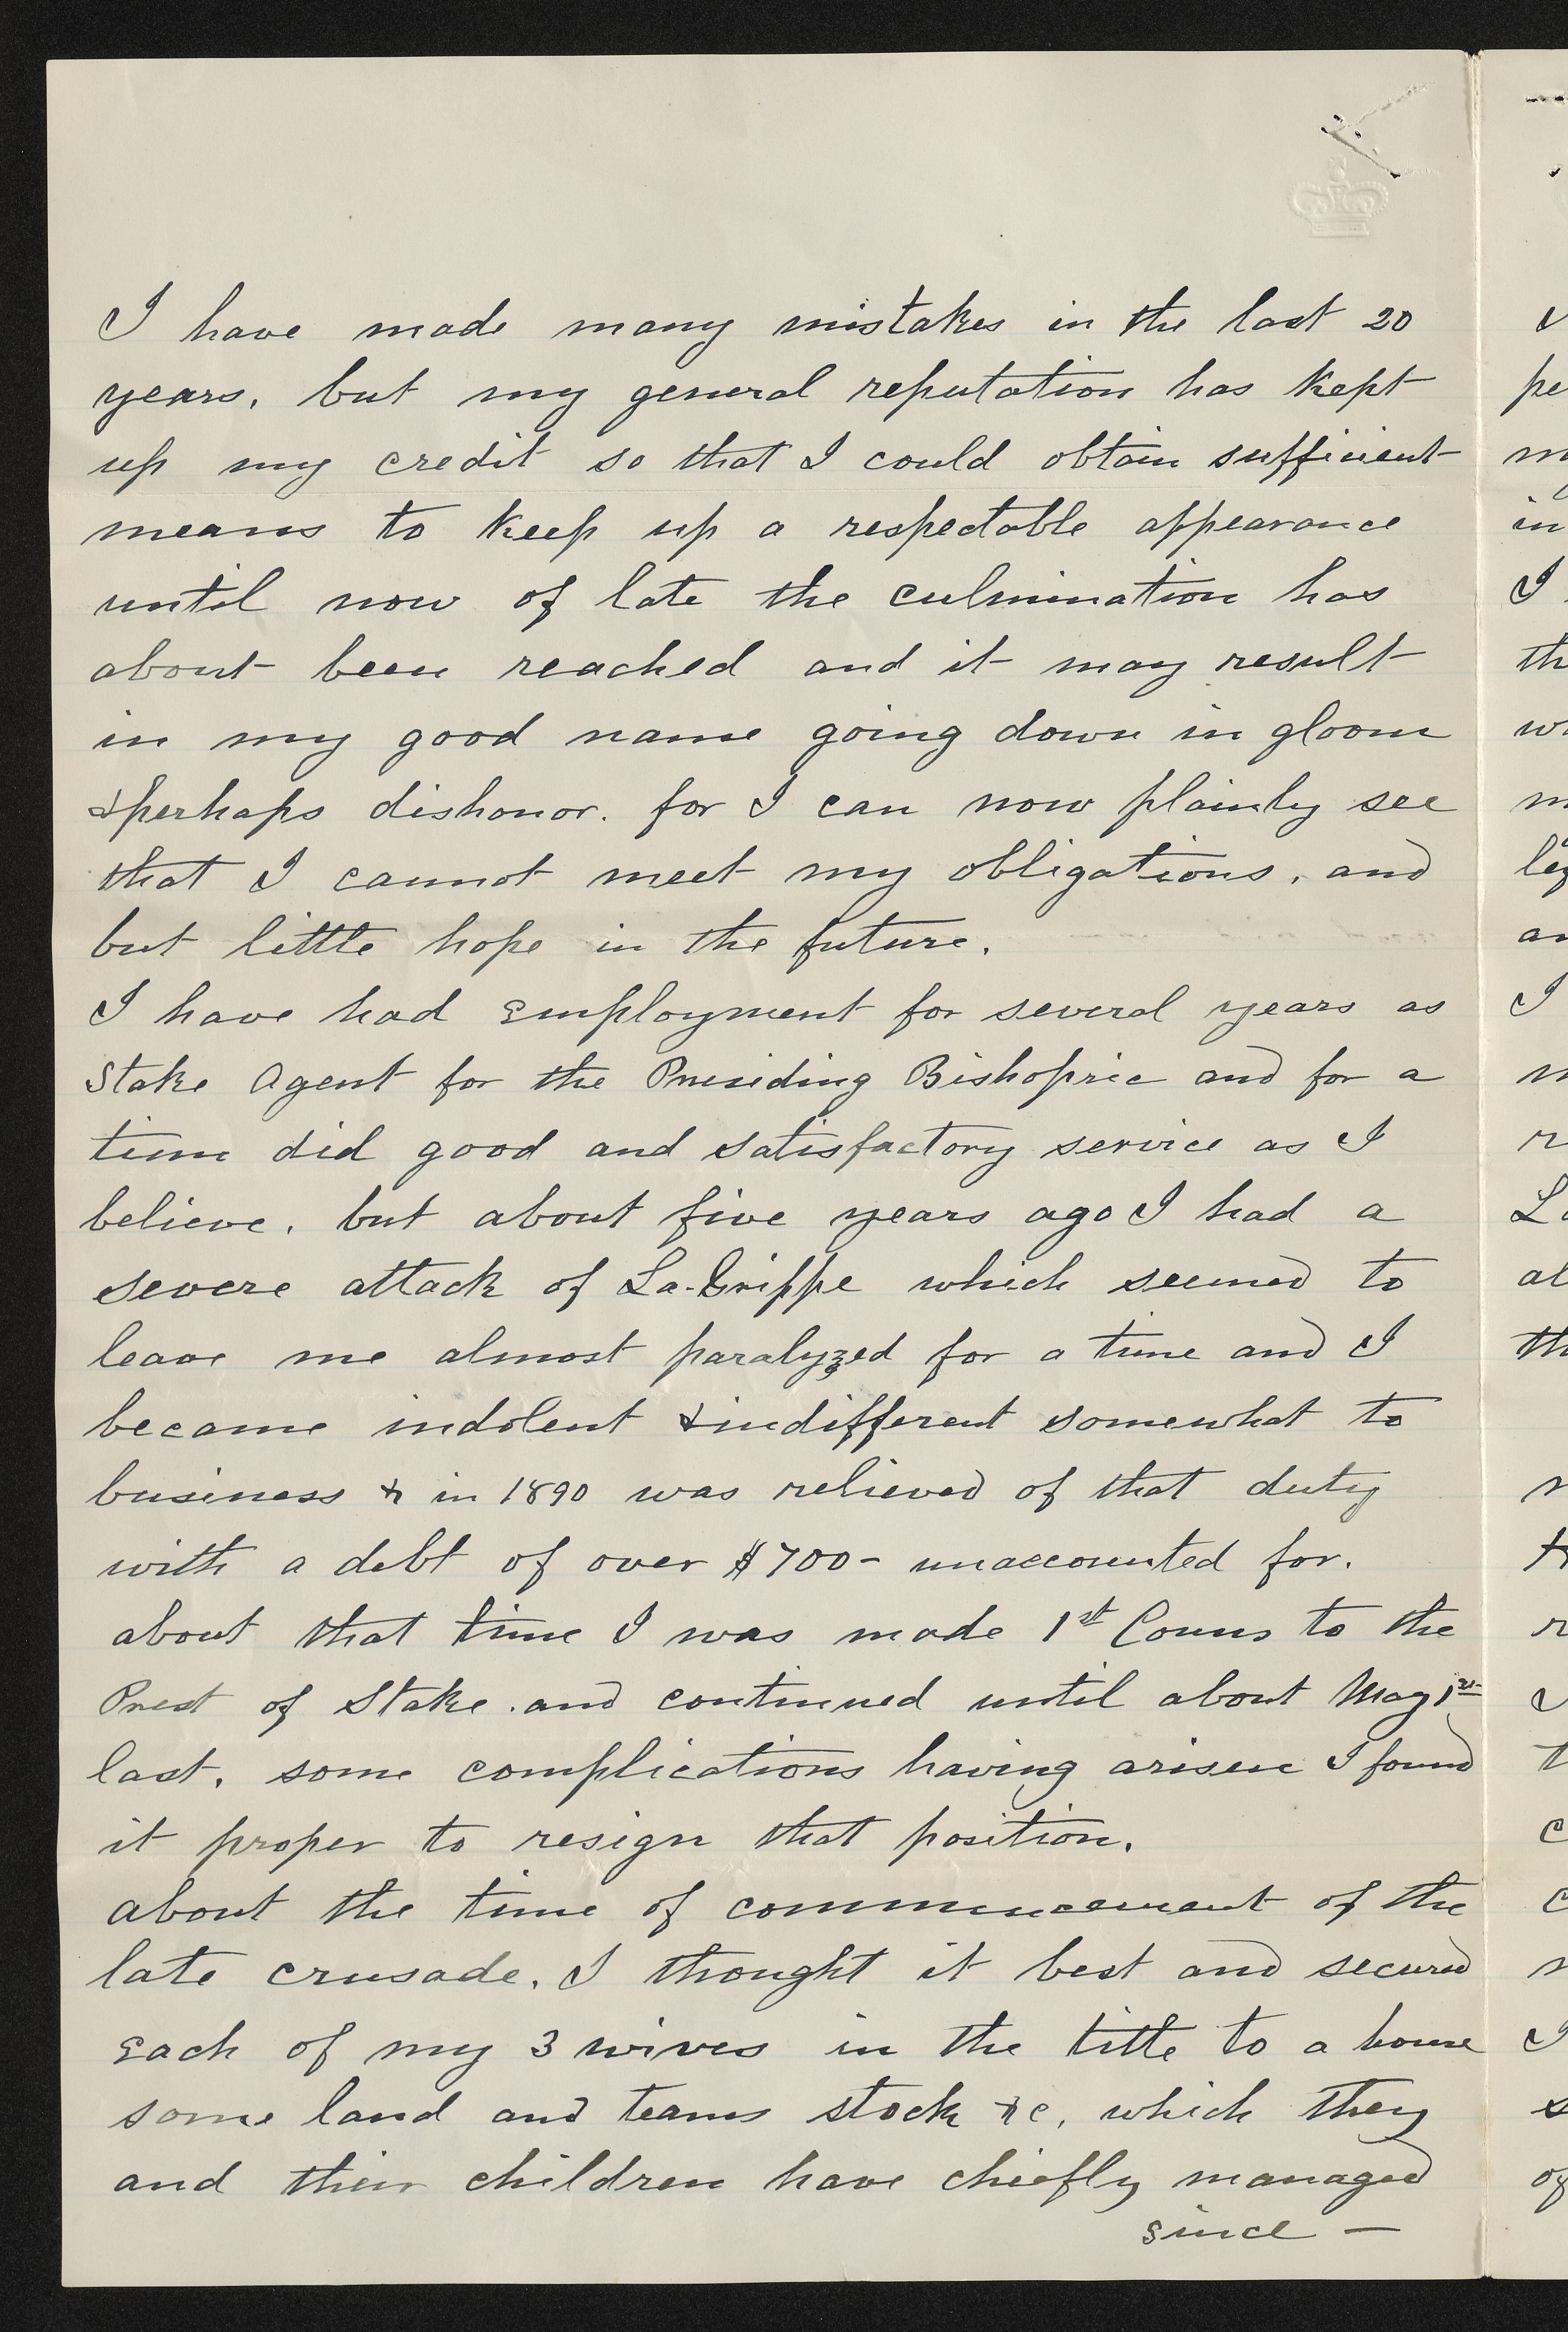 I have made many mistakes in the last 20
years, but my general reputation has kept
up my credit so that I could obtain sufficient
means to keep up a respectable appearance
until now of late the culmination has
about been reached and it may result
in my good name going down in gloom
& perhaps dishonor. for I can now plainly see
that I cannot meet my obligations, and
but little hope in the future.
I have had Employment for several years as
Stake Agent for the Presiding Bishopric and for a
time did good and satisfactory service as I
believe, but about five years ago I had a
severe attack of La-Grippe which seemed to
leave me almost paralyzed for a time and I
became indolent & indifferent somewhat to
business & in 1890 was relieved of that duty
with a debt of over $700- unaccounted for.
about that time I was made 1st Couns to the
Prest of Stake. and continued until about May 1st
last, some complications having arisen I found
it proper to resign that position.
about the time of commencement of the
late crusade, I thought it best and secured
Each of my 3 wives in the title to a home
some land and teams stock &c, which they
and their children have chiefly managed
since —